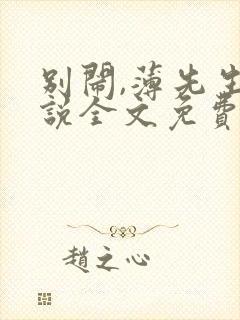 別鬧,薄先生
說全文免費
趙之心